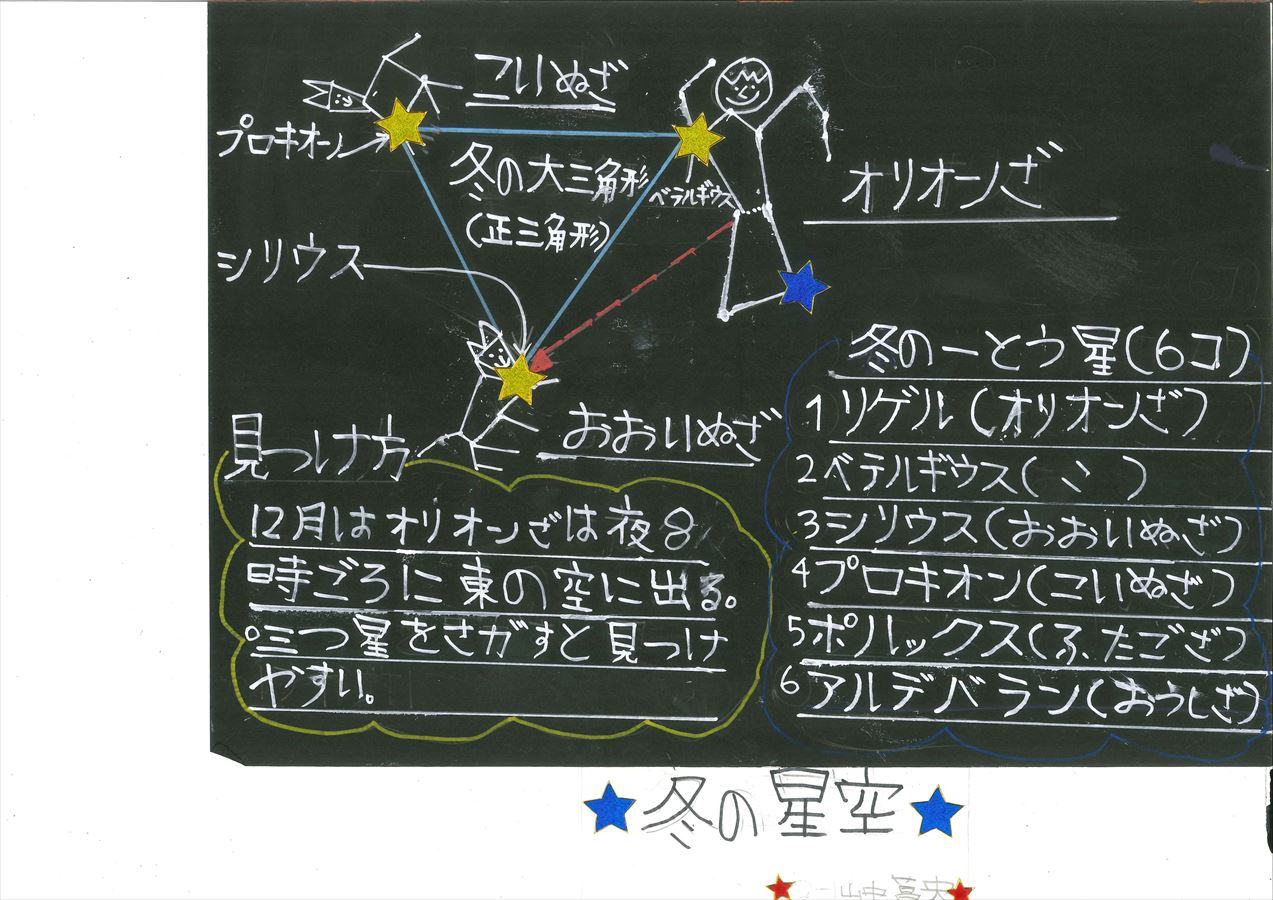 こいぬざ
プロキオン
冬の大三角形
(正三角形)
ベテルギウス
オリオンざ
シリウス
おおいぬざ
見つけ方
12月はオリオンざは夜8
時ごろに東の空に出る。
○三つ星をさがすと見つけ
やすい。
冬の一とう星(6コ)
1 リゲル(オリオンざ)
2 ベテルギウス(〃)
3 シリウス(おおいぬざ)
4 プロキオン(こいぬざ)
5 ポルックス(ふたござ)
6 アルデバラン(おうしざ)
冬の星空